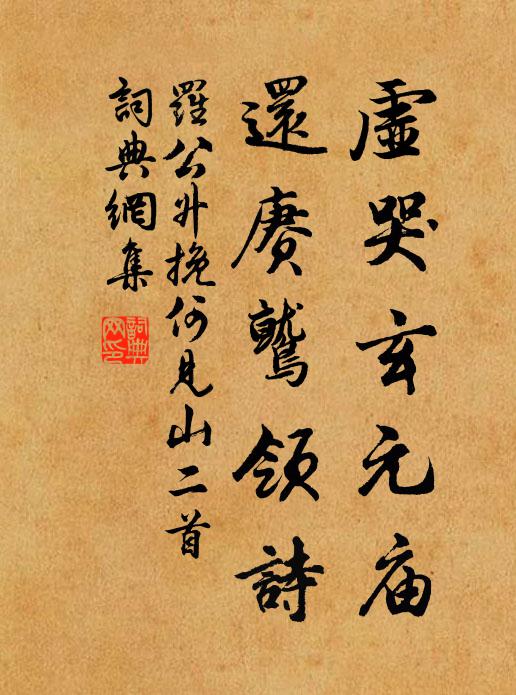 虛哭玄元庙
還賡鷲領詩
羅公升挽何見山二首
詞典網集
詞典网印